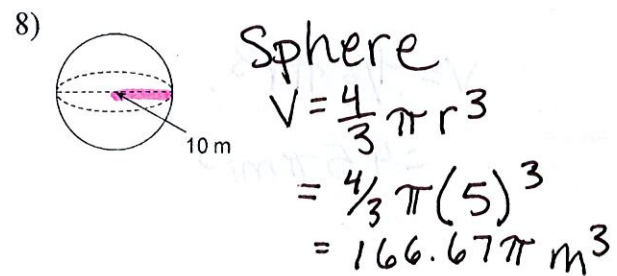 8)
10 m
Sphere
V = 4/3 π r³
= 4/3 π(5)³
= 166.67π m³